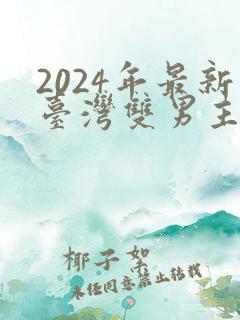 2024年最新
臺灣雙男主
椰子絮
未经同意禁止转载